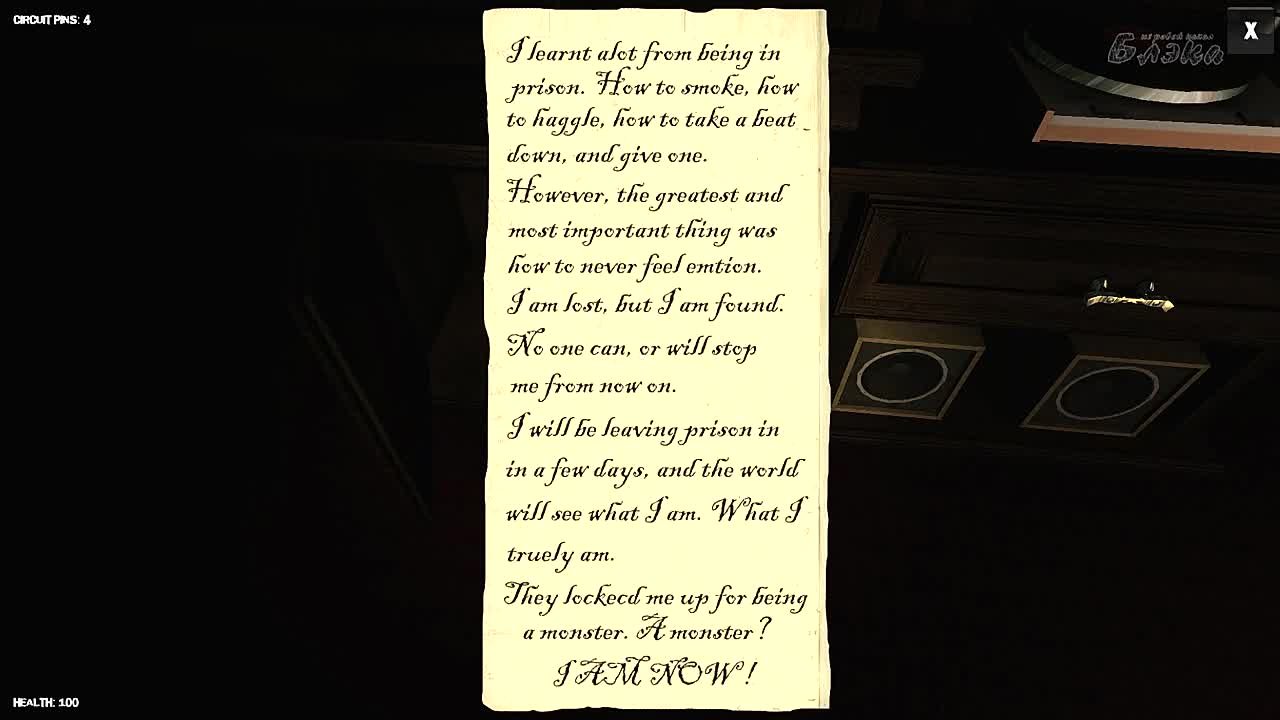 CIRCUIT PINS: 4
X
игровой канал
Блэка
I learnt alot from being in
prison. How to smoke, how
to haggle, how to take a beat
down, and give one.
However, the greatest and
most important thing was
how to never feel emtion.
I am lost, but I am found.
No one can, or will stop
me from now on.
I will be leaving prison in
in a few days, and the world
will see what I am. What I
truely am.
They lockecd me up for being
a monster. A monster?
I AM NOW!
HEALTH: 100